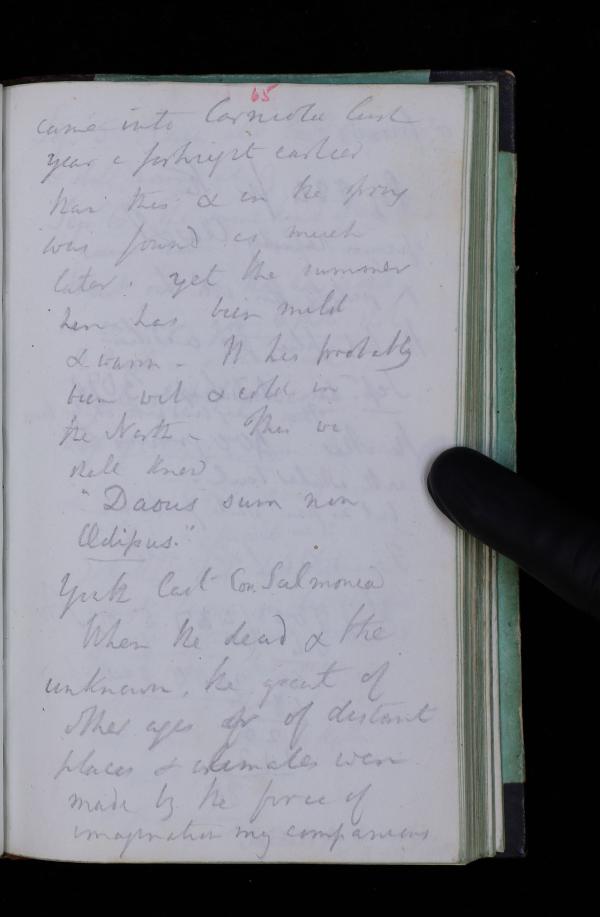 65
came into Carniola last
year a fortnight earlier
than this & in the spring
was found as much
later. Yet the summer
here has been mild
& warm - It has probably
been wet & cold in
the North - This we
shall know
"Davus sum non
Œdipus."
Last Con. Salmonia
When the dead & the
unknown, the great of
other ages & of distant
places & climates were
made by the force of
imagination my companions